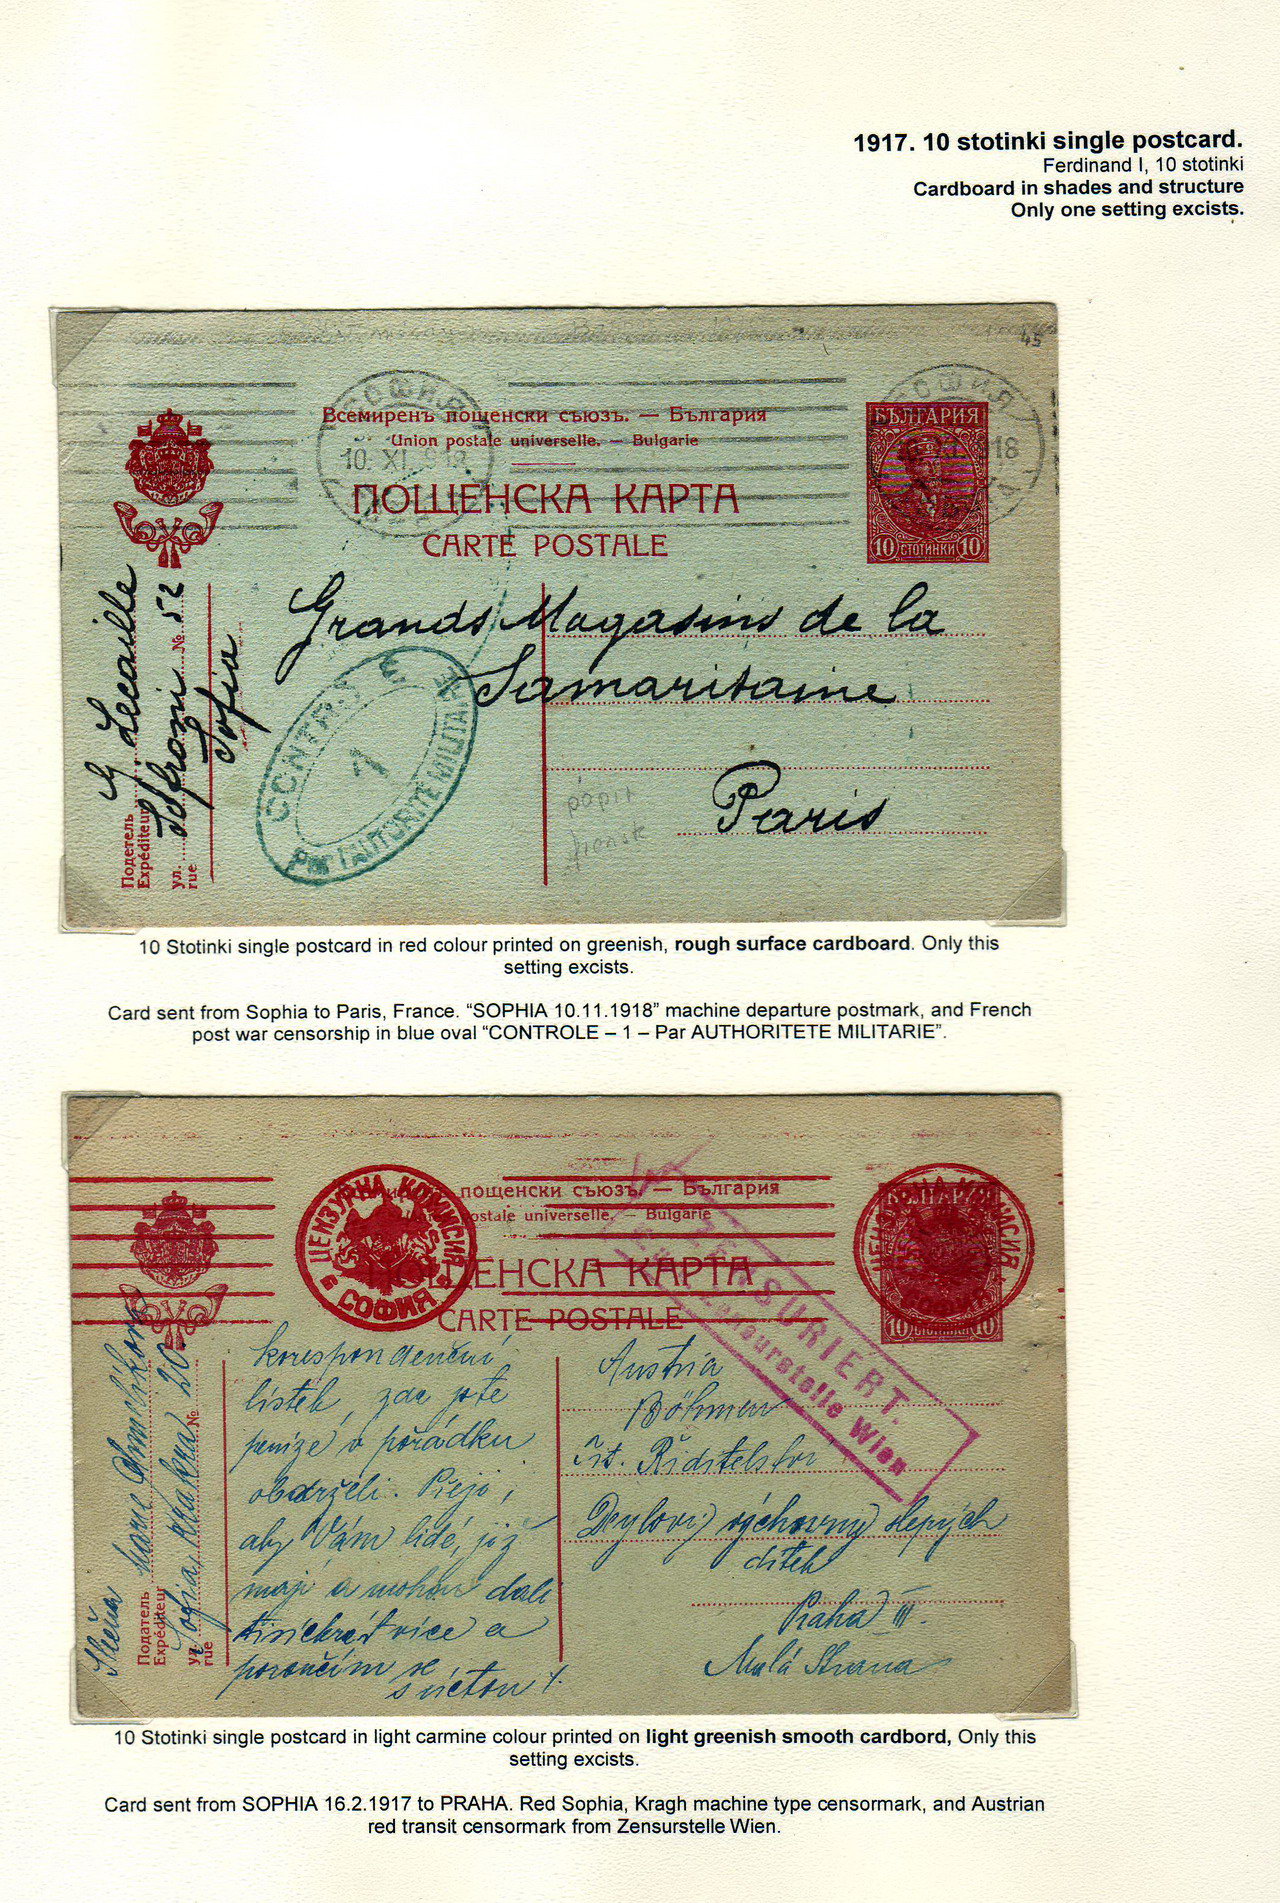 1917. 10 stotinki single postcard.
Ferdinand I, 10 stotinki
Cardboard in shades and structure
Only one setting excists.
45
СОФИЯ
10. XI. 918
СОФИЯ
Всемиренъ пощенски съюзъ. — България
Union postale universelle. — Bulgarie
ПОЩЕНСКА КАРТА
CARTE POSTALE
БЪЛГАРИЯ
10 СТОТИНКИ 10
Grands Magasins de la
Samaritaine
Paris
G Lecaille
Sofroni № 52
Sofia
Податель
Expéditeur
ул.
rue
CONTROLE
1
Par L'AUTORITÉ MILITAIRE
10 Stotinki single postcard in red colour printed on greenish, rough surface cardboard. Only this
setting excists.
Card sent from Sophia to Paris, France. “SOPHIA 10.11.1918” machine departure postmark, and French
post war censorship in blue oval “CONTROLE – 1 – Par AUTHORITETE MILITARIE”.
ЦЕНЗУРНА КОМИСИЯ
СОФИЯ
пощенски съюзъ. — България
postale universelle. — Bulgarie
ПОЩЕНСКА КАРТА
CARTE POSTALE
БЪЛГАРИЯ
10 СТОТИНКИ 10
ZENSURIERT.
K.u.k. Zensurstelle Wien
korespondenční
lístek, zda jste
peníze v pořádku
obdrželi. Přeji,
aby Vám lidé, již
mají a mohou dali
tisíckrát více a
poroučím se
s úctou
Austria
Böhmen
Ředitelstvo
Deylovy výchovny slepých
dítek
Praha III.
Malá Strana
Податель
Expéditeur
ул.
rue
Sofia, 20
№
10 Stotinki single postcard in light carmine colour printed on light greenish smooth cardbord, Only this
setting excists.
Card sent from SOPHIA 16.2.1917 to PRAHA. Red Sophia, Kragh machine type censormark, and Austrian
red transit censormark from Zensurstelle Wien.